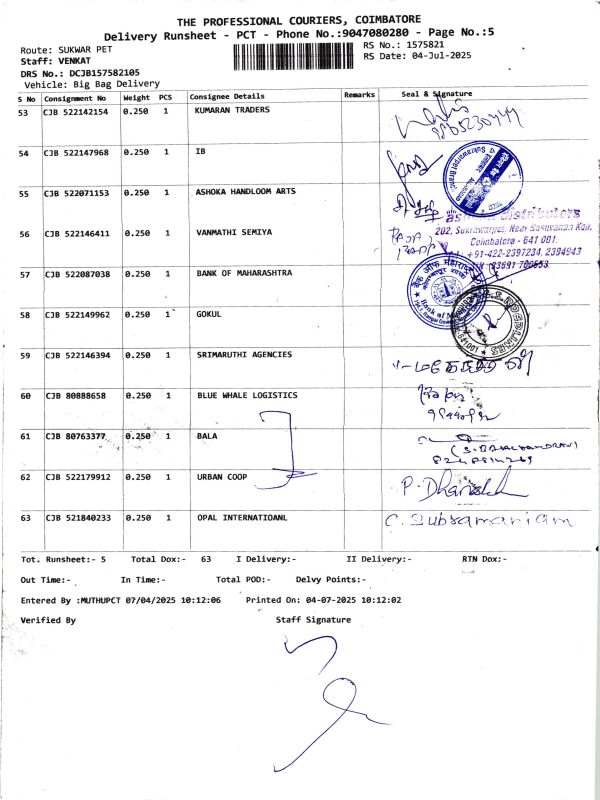 THE PROFESSIONAL COURIERS, COIMBATORE
Delivery Runsheet - PCT - Phone No.:9047080280 - Page No.:5
Route: SUKWAR PET
RS No.: 1575821
Staff: VENKAT
RS Date: 04-Jul-2025
DRS No.: DCJB157582105
Vehicle: Big Bag Delivery
S No Consignment No Weight PCS Consignee Details Remarks Seal & Signature
53 CJB 522142154 0.250 1 KUMARAN TRADERS
54 CJB 522147968 0.250 1 IB
55 CJB 522071153 0.250 1 ASHOKA HANDLOOM ARTS
56 CJB 522146411 0.250 1 VANMATHI SEMIYA
distributors
202, Sukrawarpet, Near Basuvanan Kovi
Coimbatore - 641 001.
+91-422-2397234, 2394943
57 CJB 522087038 0.250 1 BANK OF MAHARASHTRA
58 CJB 522149962 0.250 1 GOKUL
59 CJB 522146394 0.250 1 SRIMARUTHI AGENCIES
60 CJB 80888658 0.250 1 BLUE WHALE LOGISTICS
61 CJB 80763377 0.250 1 BALA
62 CJB 522179912 0.250 1 URBAN COOP
P. Dhanash
63 CJB 521840233 0.250 1 OPAL INTERNATIOANL
C. Subramaniam
Tot. Runsheet:- 5 Total Dox:- 63 I Delivery:- II Delivery:- RTN Dox:-
Out Time:- In Time:- Total POD:- Delvy Points:-
Entered By :MUTHUPCT 07/04/2025 10:12:06 Printed On: 04-07-2025 10:12:02
Verified By Staff Signature